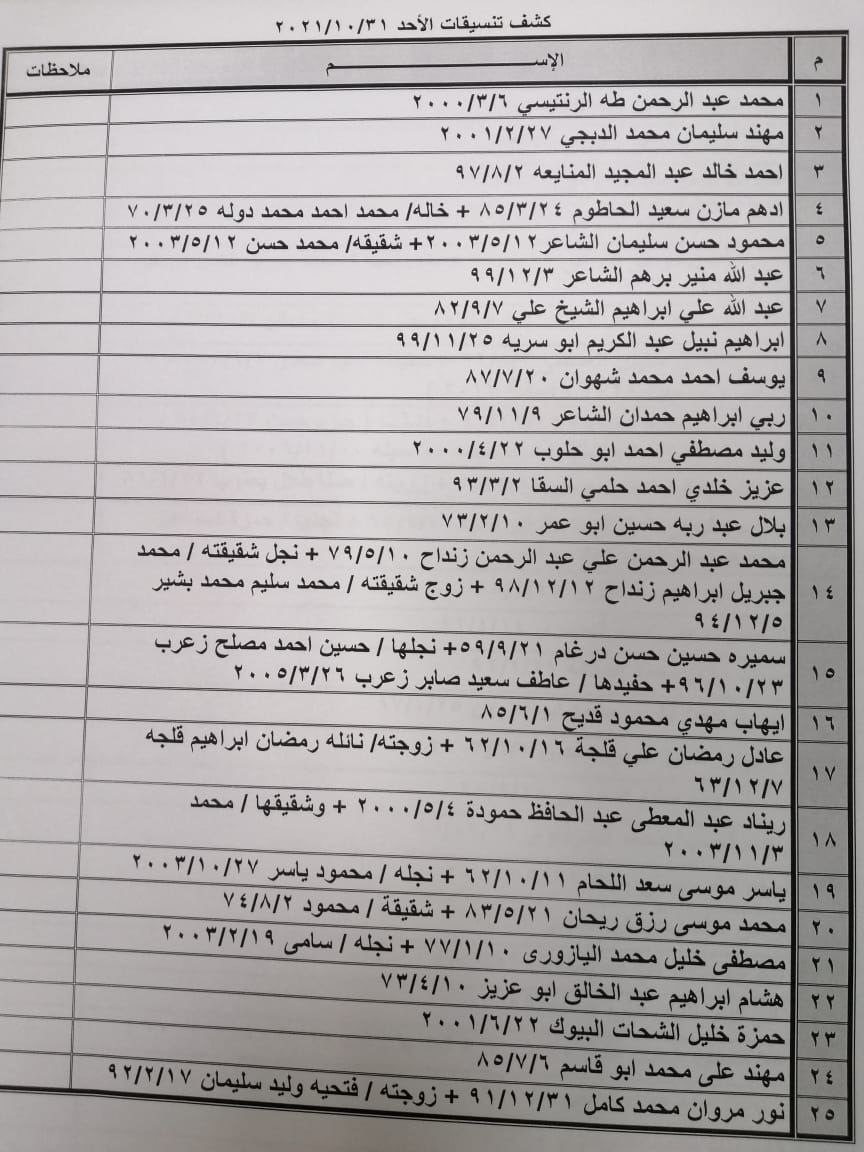 كشف تنسيقات الأحد ٢٠٢١/١٠/٣١
م الإســــــــم ملاحظات
١ محمد عبد الرحمن طه الرنتيسي ٢٠٠٠/٣/٦
٢ مهند سليمان محمد الدبجي ٢٠٠١/٢/٢٧
٣ احمد خالد عبد المجيد المنايعه ٩٧/٨/٢
٤ ادهم مازن سعيد الحاطوم ٨٥/٣/٢٤ + خاله/ محمد احمد محمد دوله ٧٠/٣/٢٥
٥ محمود حسن سليمان الشاعر ٢٠٠٣/٥/١٢+ شقيقه/ محمد حسن ٢٠٠٣/٥/١٢
٦ عبد الله منير برهم الشاعر ٩٩/١٢/٣
٧ عبد الله علي ابراهيم الشيخ علي ٨٢/٩/٧
٨ ابراهيم نبيل عبد الكريم ابو سريه ٩٩/١١/٢٥
٩ يوسف احمد محمد شهوان ٨٧/٧/٢٠
١٠ ربي ابراهيم حمدان الشاعر ٧٩/١١/٩
١١ وليد مصطفي احمد ابو حلوب ٢٠٠٠/٤/٢٢
١٢ عزيز خلدي احمد حلمي السقا ٩٣/٣/٢
١٣ بلال عبد ربه حسين ابو عمر ٧٣/٢/١٠
١٤ محمد عبد الرحمن علي عبد الرحمن زنداح ٧٩/٥/١٠ + نجل شقيقته / محمد
جبريل ابراهيم زنداح ٩٨/١٢/١٢ + زوج شقيقته / محمد سليم محمد بشير
٩٤/١٢/٥
١٥ سميره حسين حسن درغام ٥٩/٩/٢١+ نجلها / حسين احمد مصلح زعرب
٩٦/١٠/٢٣+ حفيدها / عاطف سعيد صابر زعرب ٢٠٠٥/٣/٢٦
١٦ ايهاب مهدي محمود قديح ٨٥/٦/١
١٧ عادل رمضان علي قلجة ٦٢/١٠/١٦ + زوجته/ نائله رمضان ابراهيم قلجه
٦٣/١٢/٧
١٨ ريناد عبد المعطى عبد الحافظ حمودة ٢٠٠٠/٥/٤ + وشقيقها / محمد
٢٠٠٣/١١/٣
١٩ ياسر موسى سعد اللحام ٦٢/١٠/١١ + نجله / محمود ياسر ٢٠٠٣/١٠/٢٧
٢٠ محمد موسى رزق ريحان ٨٣/٥/٢١ + شقيقة / محمود ٧٤/٨/٢
٢١ مصطفى خليل محمد اليازورى ٧٧/١/١٠ + نجله / سامى ٢٠٠٣/٢/١٩
٢٢ هشام ابراهيم عبد الخالق ابو عزيز ٧٣/٤/١٠
٢٣ حمزة خليل الشحات البيوك ٢٠٠١/٦/٢٢
٢٤ مهند على محمد ابو قاسم ٨٥/٧/٦
٢٥ نور مروان محمد كامل ٩١/١٢/٣١ + زوجته / فتحيه وليد سليمان ٩٢/٢/١٧